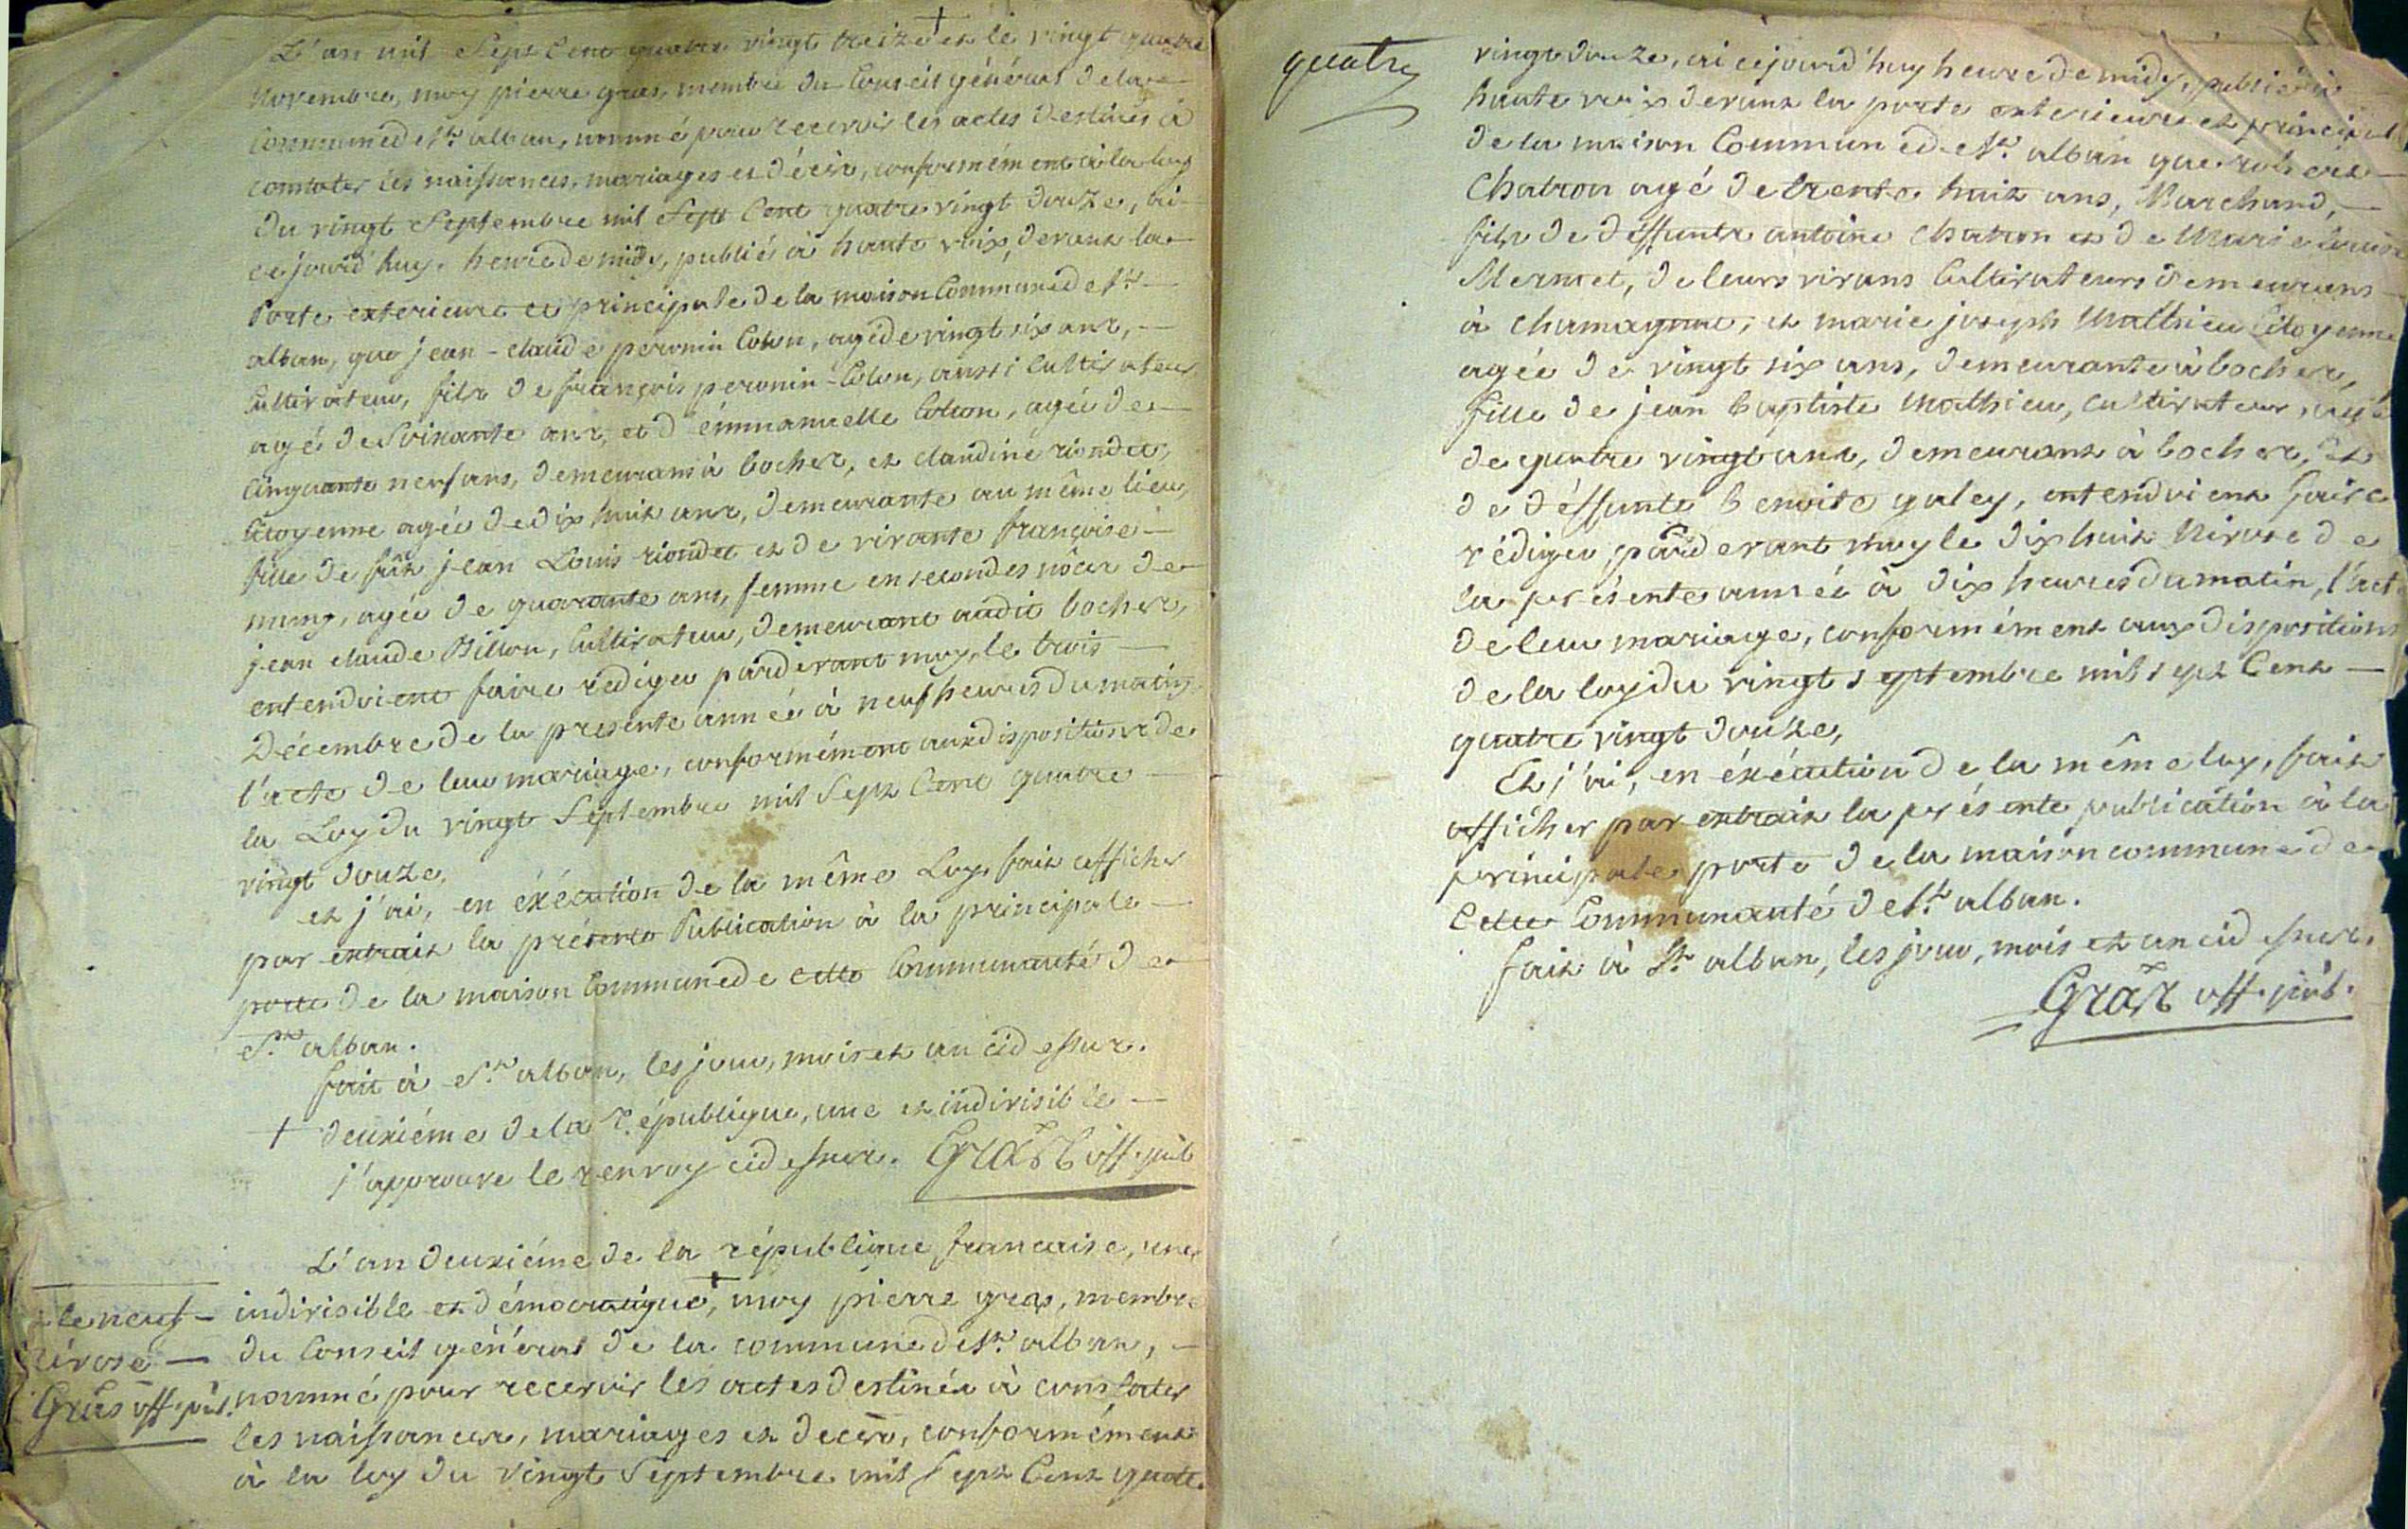 L'an mil Sept Cent quatre vingt treize + et le vingt quatre
Novembre, moy pierre gras, membre du Conseil général de la
Commune de St. alban, nommé pour recevoir les actes destinés à
constater les naissances, mariages et décès, conformément à la loy
du vingt Septembre mil Sept Cent quatre vingt douze, ai
ce jourd'huy, heure de midy, publié à haute voix, devant la
Porte exterieure et principale de la maison Commune de St.
alban, que jean-claude peronin Colon, agé de vingt six ans,
Cultivateur, fils de françois peronin-Colon, aussi Cultivateur
agé de Soixante ans, et d'émmanuelle Colson, agée de
Cinquante neuf ans, demeurans à bocher, et claudine riondet,
Citoyenne agée de dix huit ans, demeurante au même lieu,
fille de fûx jean Louis riondet et de vivante françoise
, agée de quarante ans, femme en secondes nôces de
jean claude Billon, Cultivateur, demeurant audit bocher,
entendoient faire rediger pardevant moy, le trois
Décembre de la presente année à neuf heures du matin,
l'acte de leur mariage, conformément aux dispositions de
la Loy du vingt Septembre mil Sept Cent quatre
vingt douze,
et j'ai, en éxécution de la même Loy, fait afficher
par extrait la présente Publication à la principale
porte de la maison Commune de cette Communauté de
St. alban.
fait à St. alban, les jour, mois et an cidessus.
+ deuxiéme de la République, une et indivisible
j'approuve le renvoy cidessus. Gras off. pub
L'an deuxiéme de la république francaise, une
indivisible et démocratique, + moy pierre gras, membre
du Conseil général de la commune de St. alban,
nommé pour recevoir les actes destinés à constater
les naissances, mariages et decès, conformément
à la loy du vingt Septembre mil Sept Cent quatre
+ le neuf
nivose
Gras off. pub.
quatre
vingt douze, ai cejourd'huy heure de midy, publié à
haute voix devant la porte exterieure et principale
de la maison Commune de St. alban que
Chatron agé de trente huit ans, Marchand,
fils de déffunts antoine Chatron et de Marie
Mermet, de leurs vivans Cultivateurs demeurans
à Chamagneu, et marie joseph Mathieu Citoyenne
agée de vingt six ans, demeurante à bocher,
fille de jean baptiste Mathieu, cultivateur, agé
de quatre vingt ans, demeurant à bocher, et
de déffunte benoite galey, entendoient faire
rédiger pardevant moy le dix huit Nivose de
la présente année à dix heures du matin, l'acte
de leur mariage, conformément aux dispositions
de la loy du vingt septembre mil sept Cent
quatre vingt douze,
Et j'ai, en éxécution de la même loy, fait
afficher par extrait la présente publication à la
principale porte de la maison commune de
Cette Communauté de St. alban.
fait à St. alban, les jour, mois et an cidessus.
Gras off. pub.